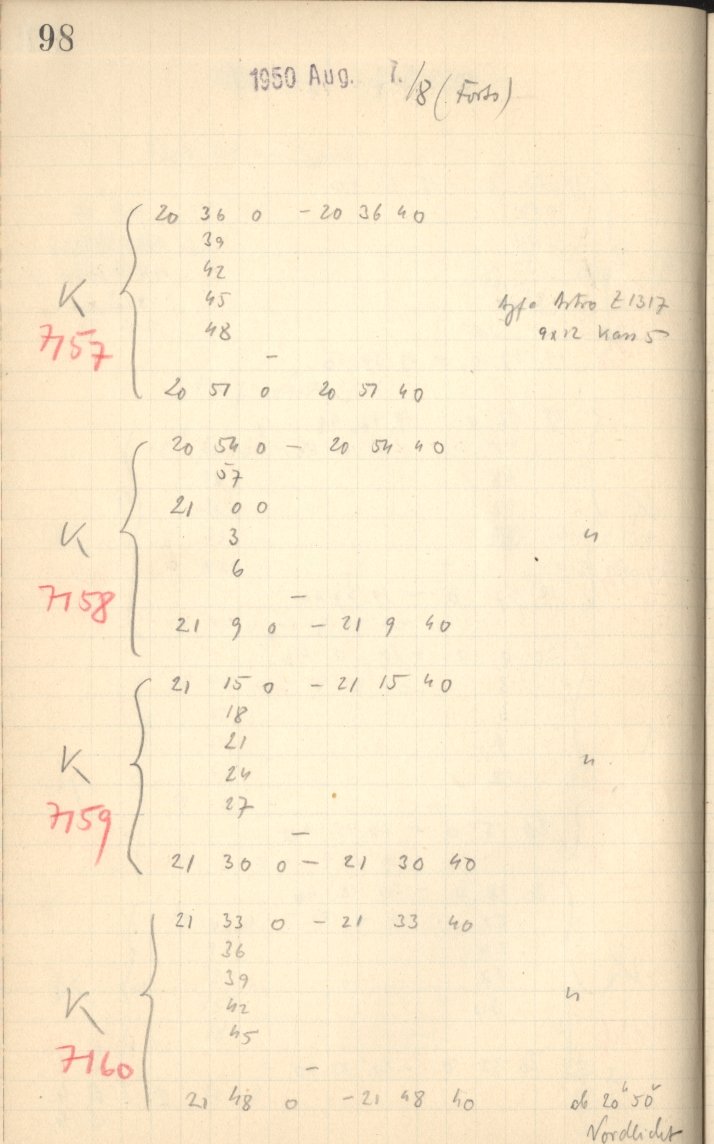 98
1950 Aug. 7./8 (Forts)
20 36 0 - 20 36 40
39
42
45
48
-
20 51 0 20 51 40
K
7157
Agfa Astro Z1317
9x12 Kass 5
20 54 0 - 20 54 40
57
21 0 0
3
6
-
21 9 0 - 21 9 40
K
7158
"
21 15 0 - 21 15 40
18
21
24
27
-
21 30 0 - 21 30 40
K
7159
"
21 33 0 - 21 33 40
36
39
42
45
-
21 48 0 - 21 48 40
K
7160
"
ab 20h 50m
Nordlicht